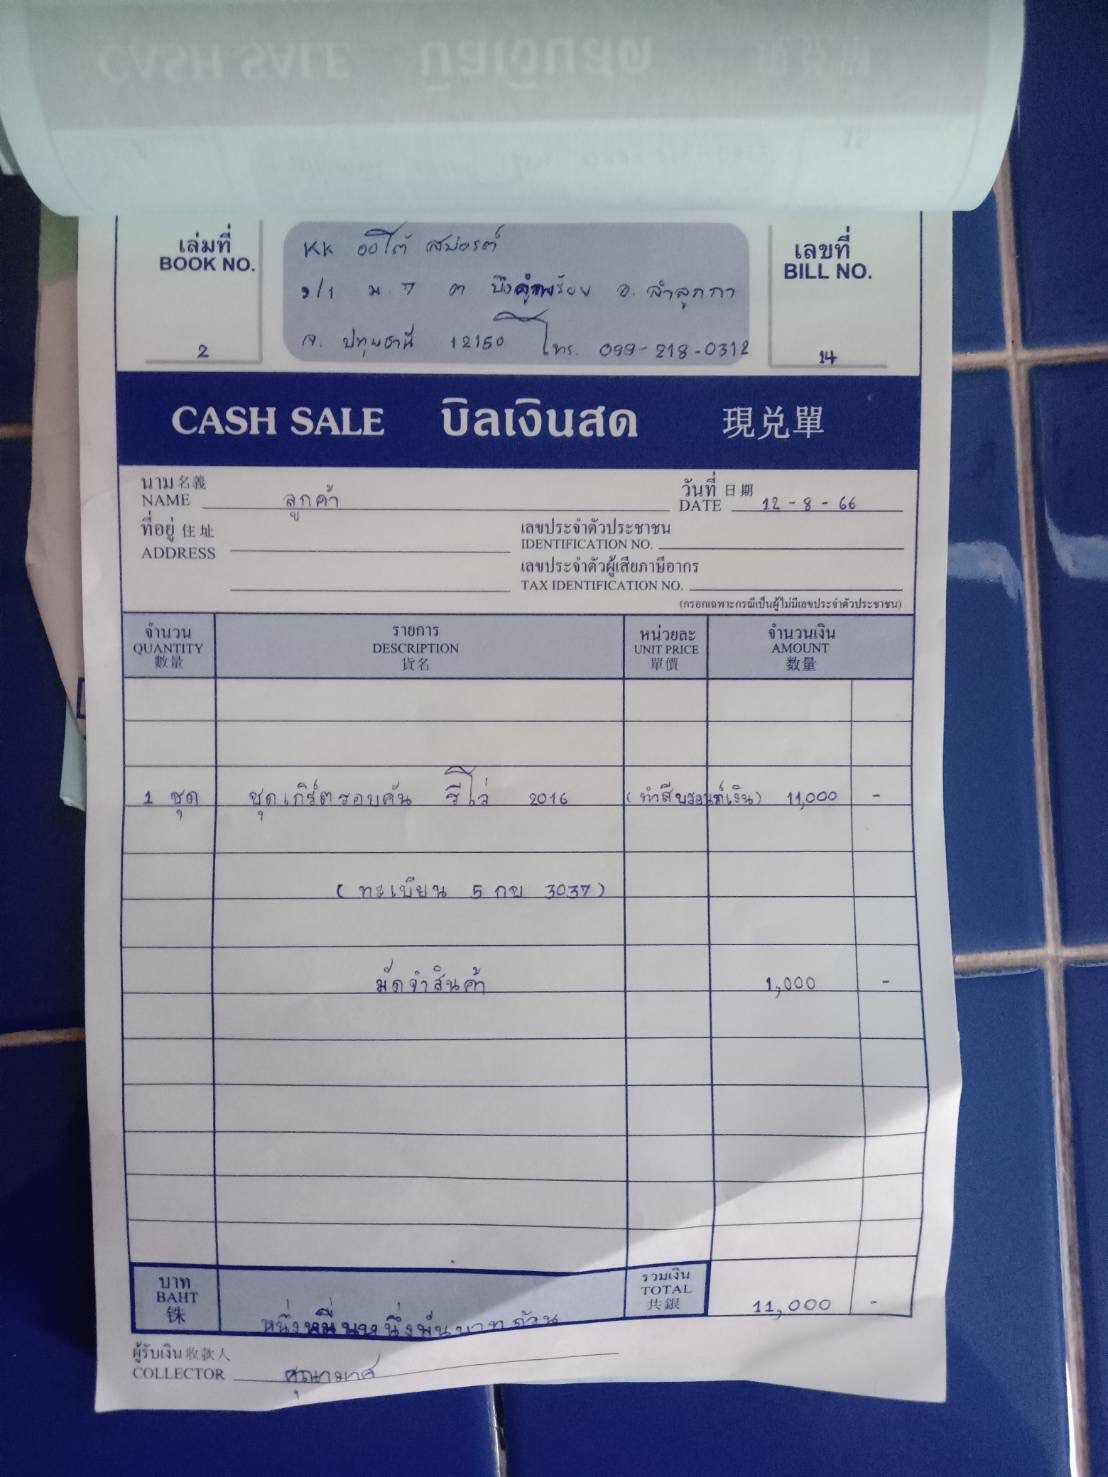 CASH SALE บิลเงินสด
เล่มที่
BOOK NO.
2
KK ออโต้ สปอรต์
9/1 ม. 7 ต บึงคำพร้อย อ. ลำลูกกา
จ. ปทุมธานี 12150 โทร. 099-218-0312
เลขที่
BILL NO.
14
CASH SALE บิลเงินสด 現兑單
นาม 名義
NAME ลูกค้า
วันที่ 日期
DATE 12 - 8 - 66
ที่อยู่ 住址
ADDRESS
เลขประจำตัวประชาชน
IDENTIFICATION NO.
เลขประจำตัวผู้เสียภาษีอากร
TAX IDENTIFICATION NO.
(กรอกเฉพาะกรณีเป็นผู้ไม่มีเลขประจำตัวประชาชน)
จำนวน รายการ หน่วยละ จำนวนเงิน
QUANTITY DESCRIPTION UNIT PRICE AMOUNT
數量 貨名 單價 数量
1 ชุด ชุดเกิร์ตรอบคัน รีโว่ 2016 (ทำสีบรอนท์เงิน) 11,000 -
(ทะเบียน 5 กข 3037)
มัดจำสินค้า 1,000 -
บาท
BAHT
銖
หนึ่งหมื่นหนึ่งพันบาทถ้วน
รวมเงิน
TOTAL
共銀
11,000 -
ผู้รับเงิน 收款人
COLLECTOR